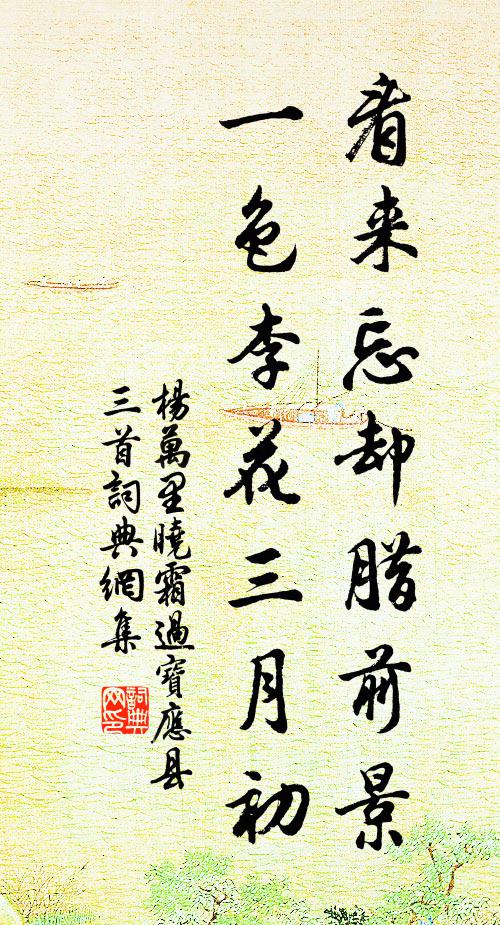 看来忘却腊前景
一色李花三月初
楊萬里曉霜過寶應县
三首詞典網集
詞典
网印